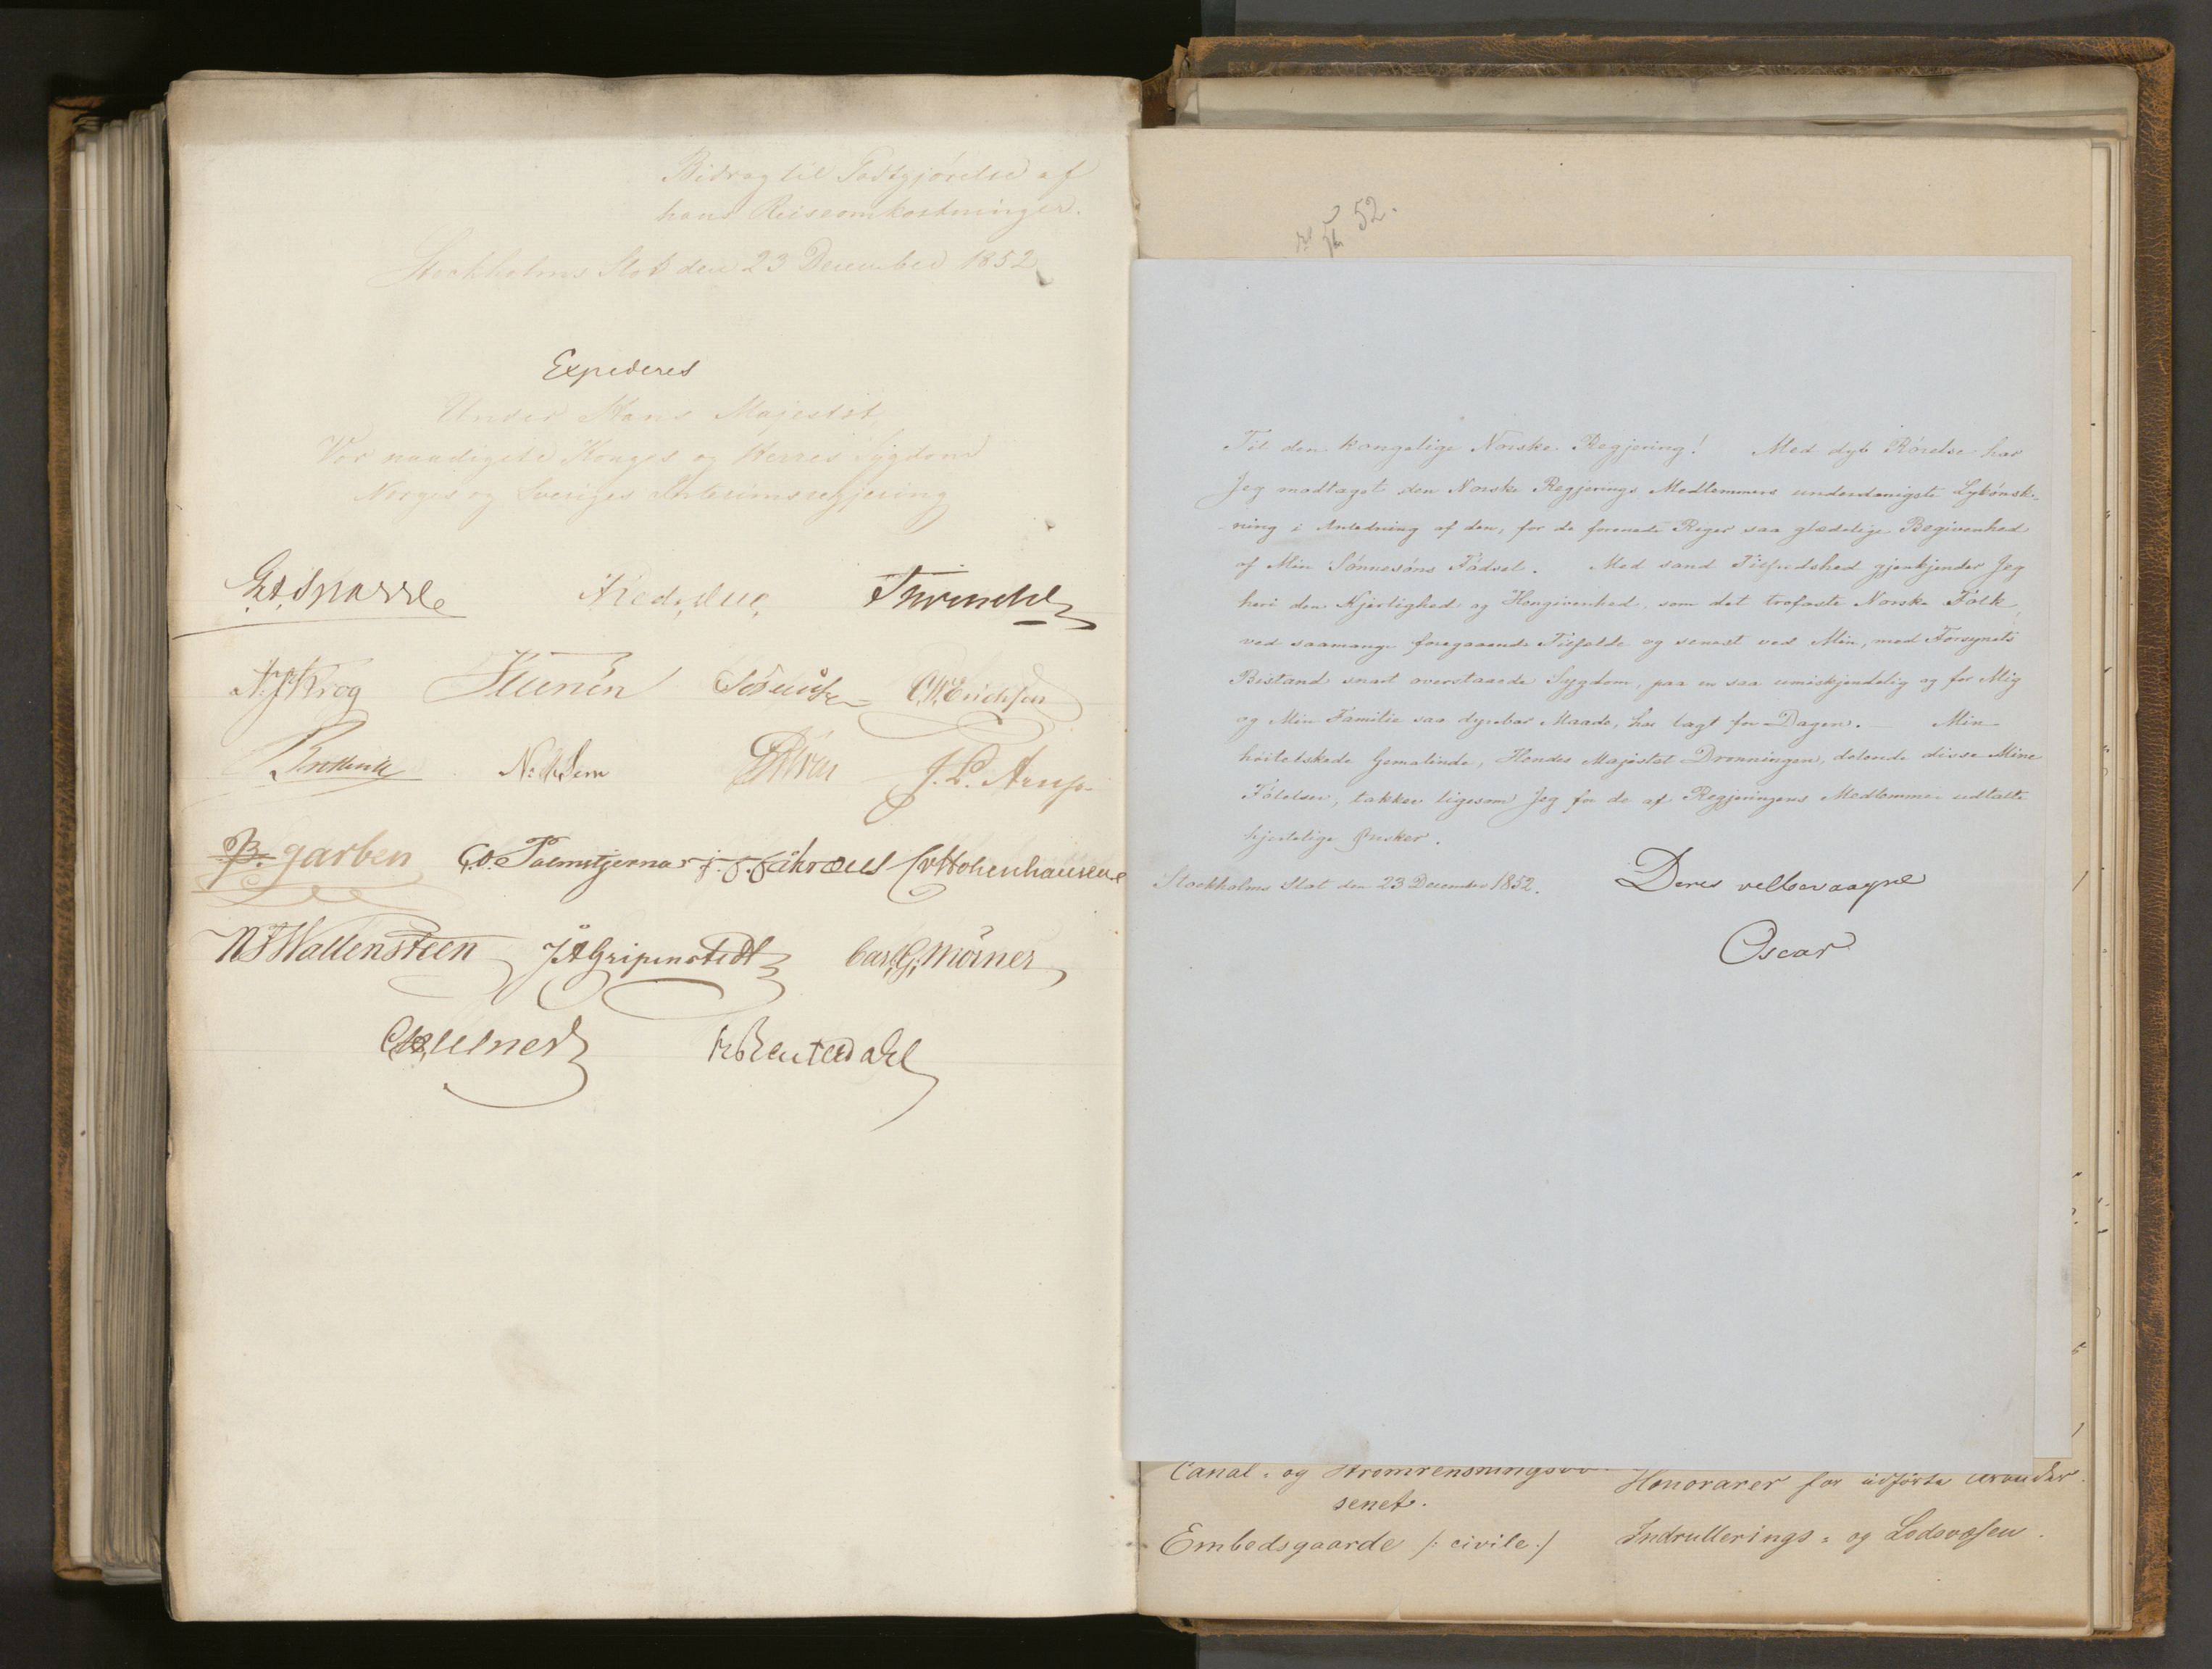 Bidrag til Godtgjørelse af
hans Reiseomkostninger.
Stockholms Slot den 23 December 1852
Expederes
Under Hans Majestæt,
Vor naadigste Konges og Herres Sygdom
Norges og Sveriges Interimsregjering
G.A. Sparre
Krog Sørenssen C.P. Erichsen
J. L. Arup
B. Garben C.O. Palmstjerna J.F. Fåhræus C v Hohenhausen
N F Wallensteen J A Gripenstedt Carl G Mörner
H Reuterdahl
52.
Til den kongelige Norske Regjering! Med dyb Rörelse har
Jeg modtaget den Norske Regjerings Medlemmers underdanigste Lykönsk-
-ning i Anledning af den, for de forenede Riger saa glædelige Begivenhed
af Min Sönnesöns Födsel. Med sand Tilfredshed gjenkjender Jeg
heri den Kjerlighed og Hengivenhed, som det trofaste Norske Folk
ved saamange foregaaende Tilfælde og senest ved Min, med Forsynets
Bistand snart overstaaede Sygdom, paa en saa umiskjendelig og for Mig
og Min Familie saa dyrebar Maade, har lagt for Dagen. Min
höitelskede Gemalinde, Hendes Majestæt Dronningen, delende disse Mine
Fölelser, takker ligesom Jeg for de af Regjeringens Medlemmer udtalte
hjertelige Ønsker.
Stockholms Slot den 23 December 1852. Deres velbevaagne
Oscar
Canal- og Honorarer for udførte Arbeider.
senet.
Embedsgaarde /: civile :/ Indrullerings- og Lodsvæsen.